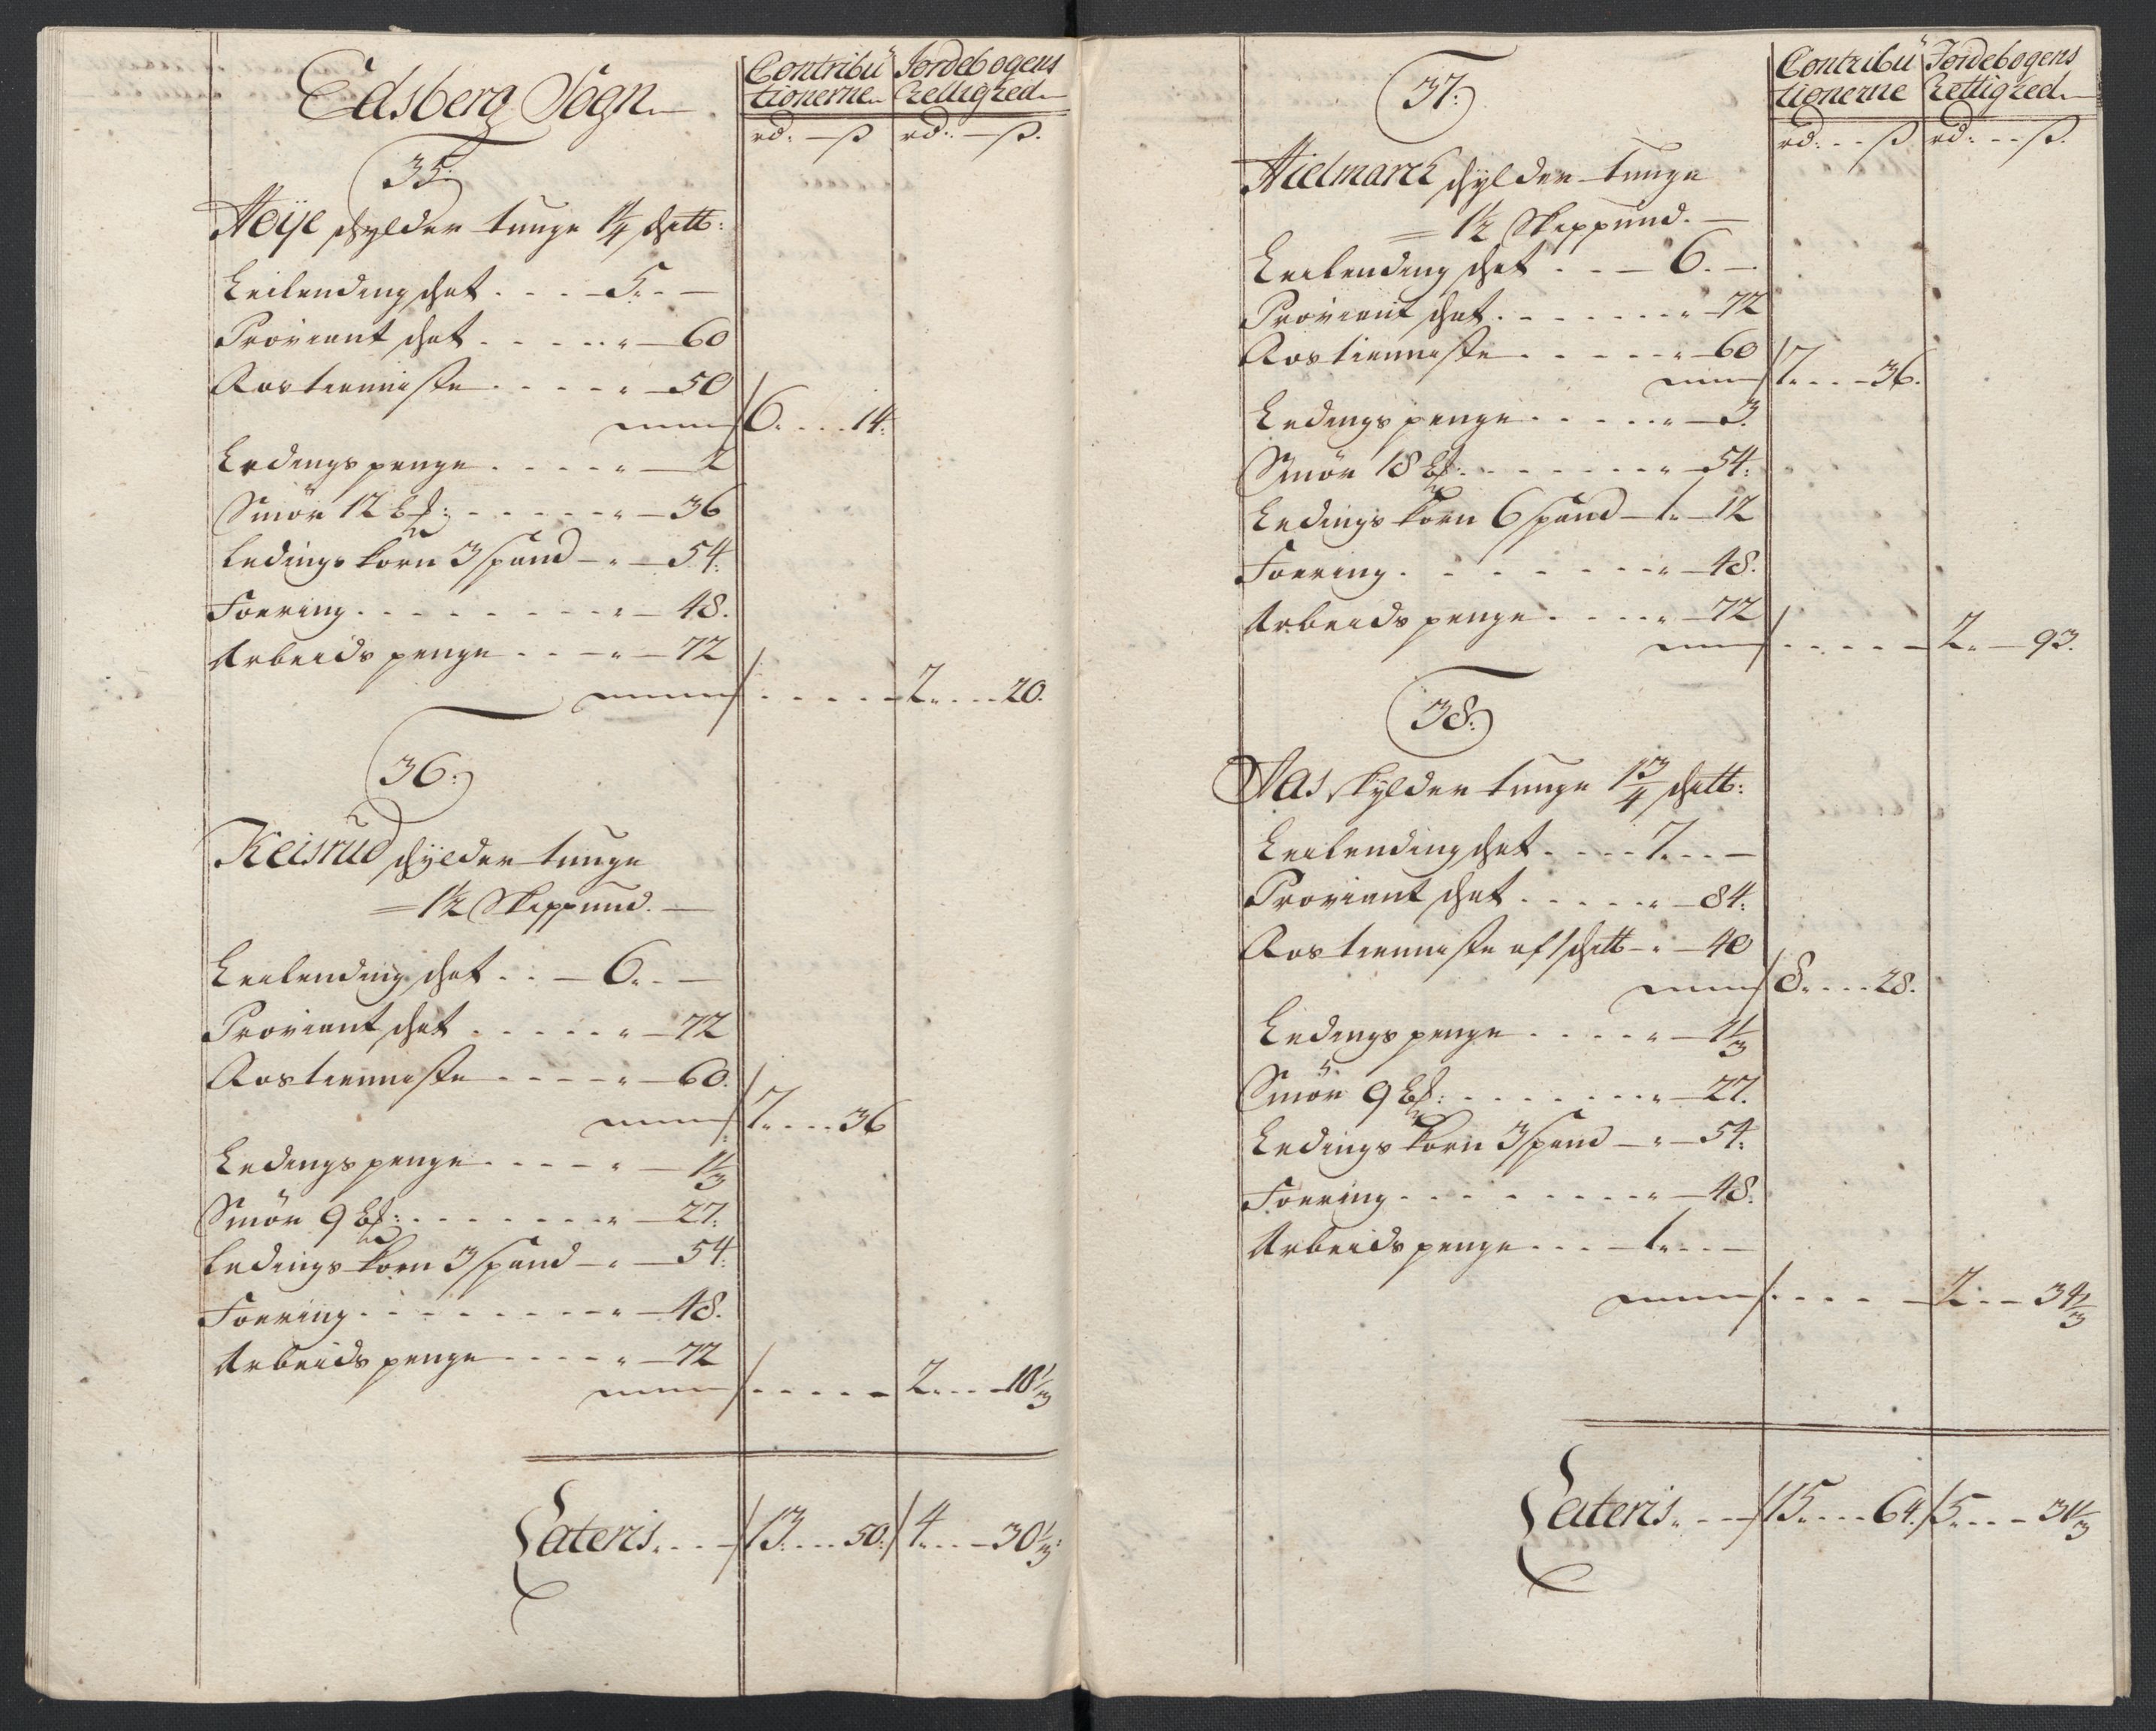 Edsberg Sogn
Contribu Jordebogens
tionerne Rettighed
rd: ß rd: ß.
35.
Høye schylder tunge 1¼ schtt:
Leilending schat . . . 5. —
Proviant schat . . . . „ 60
Rostienniste . . . . „ 50
6. . . 14.
Ledings penge . . . . „ 2
Smör 12 . . . . „ 36
Ledings korn 3 spand „ 54.
Foering . . . . „ 48.
Arbeids penge . . . „ 72
2. . . 20.
36:
Keisrud schylder tunge
1½ Skippund.
Leilending schat . . 6. —
Proviant schat . . . . „ 72
Rostienniste . . . . „ 60.
7. . . 36
Ledings penge . . . . „ 1⅓
Smör 9 . . . . „ 27.
Ledings korn 3 spand „ 54.
Foering . . . . „ 48.
Arbeids penge . . . . „ 72
2. . . 10⅓
Lateris . . . 13. . . 50. 4. . . 30⅓.
Contribu Jordebogens
tionerne Rettighed
rd: ß rd: ß.
37.
Hielmarck schylder tunge
1½ Skippund.
Leilending schat . . 6. —
Proviant schat . . . . „ 72
Rostienniste . . . . „ 60
7. . . 36.
Ledings penge . . . . „ 3.
Smör 18 . . . . „ 54.
Ledings korn 6 spand 1. 12
Foering . . . . „ 48.
Arbeids penge . . . . „ 72
2. 93.
38.
Aas skylder tunge 1¾ schtt:
Leilending schat . . . 7. . —
Proviant schat . . . . „ 84.
Rostienniste af 1 schtt „ 40
8. . . 28.
Ledings penge . . . . „ 1⅓
Smör 9 . . . . „ 27.
Ledings korn 3 spand „ 54.
Foering . . . . „ 48.
Arbeids penge . . . 1. . —
2. . 34⅓
Lateris . . . 15. . . 64. 5. . . 31⅓